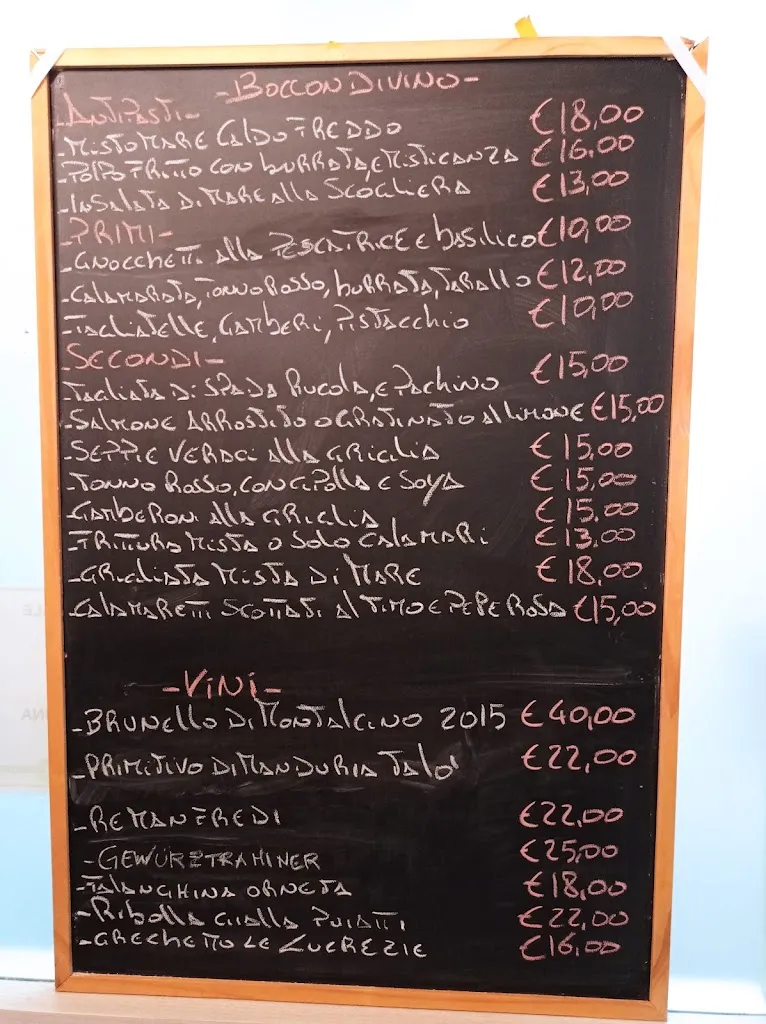 -BOCCONDIVINO-
ANTIPASTI-
-MISTO MARE CALDO FREDDO €18,00
-POLPO FRITTO CON BURRATA, E MISTICANZA €16,00
-INSALATA DI MARE ALLA SCOGLIERA €13,00
-PRIMI-
-GNOCCHETTI ALLA PESCATRICE E BASILICO €10,00
-CALAMARATA, TONNO ROSSO, BURRATA, TARALLO €12,00
-TAGLIATELLE, GAMBERI, PISTACCHIO €10,00
-SECONDI-
-TAGLIATA DI SPADA RUCOLA, E PACHINO €15,00
-SALMONE ARROSTITO O GRATINATO AL LIMONE €15,00
-SEPPIE VERACI ALLA GRIGLIA €15,00
-TONNO ROSSO, CON CIPOLLA E SOYA €15,00
-GAMBERONI ALLA GRIGLIA €15,00
-FRITTURA MISTA O SOLO CALAMARI €13,00
-GRIGLIATA MISTA DI MARE €18,00
-CALAMARETTI SCOTTATI AL TIMO E PEPE ROSA €15,00
-VINI-
-BRUNELLO DI MONTALCINO 2015 €40,00
-PRIMITIVO DI MANDURIA TALO' €22,00
-RE MANFREDI €22,00
-GEWÜRZTRAMINER €25,00
-FALANGHINA ORNETA €18,00
-RIBOLLA GIALLA PUIATTI €22,00
-GRECHETTO LE LUCREZIE €16,00